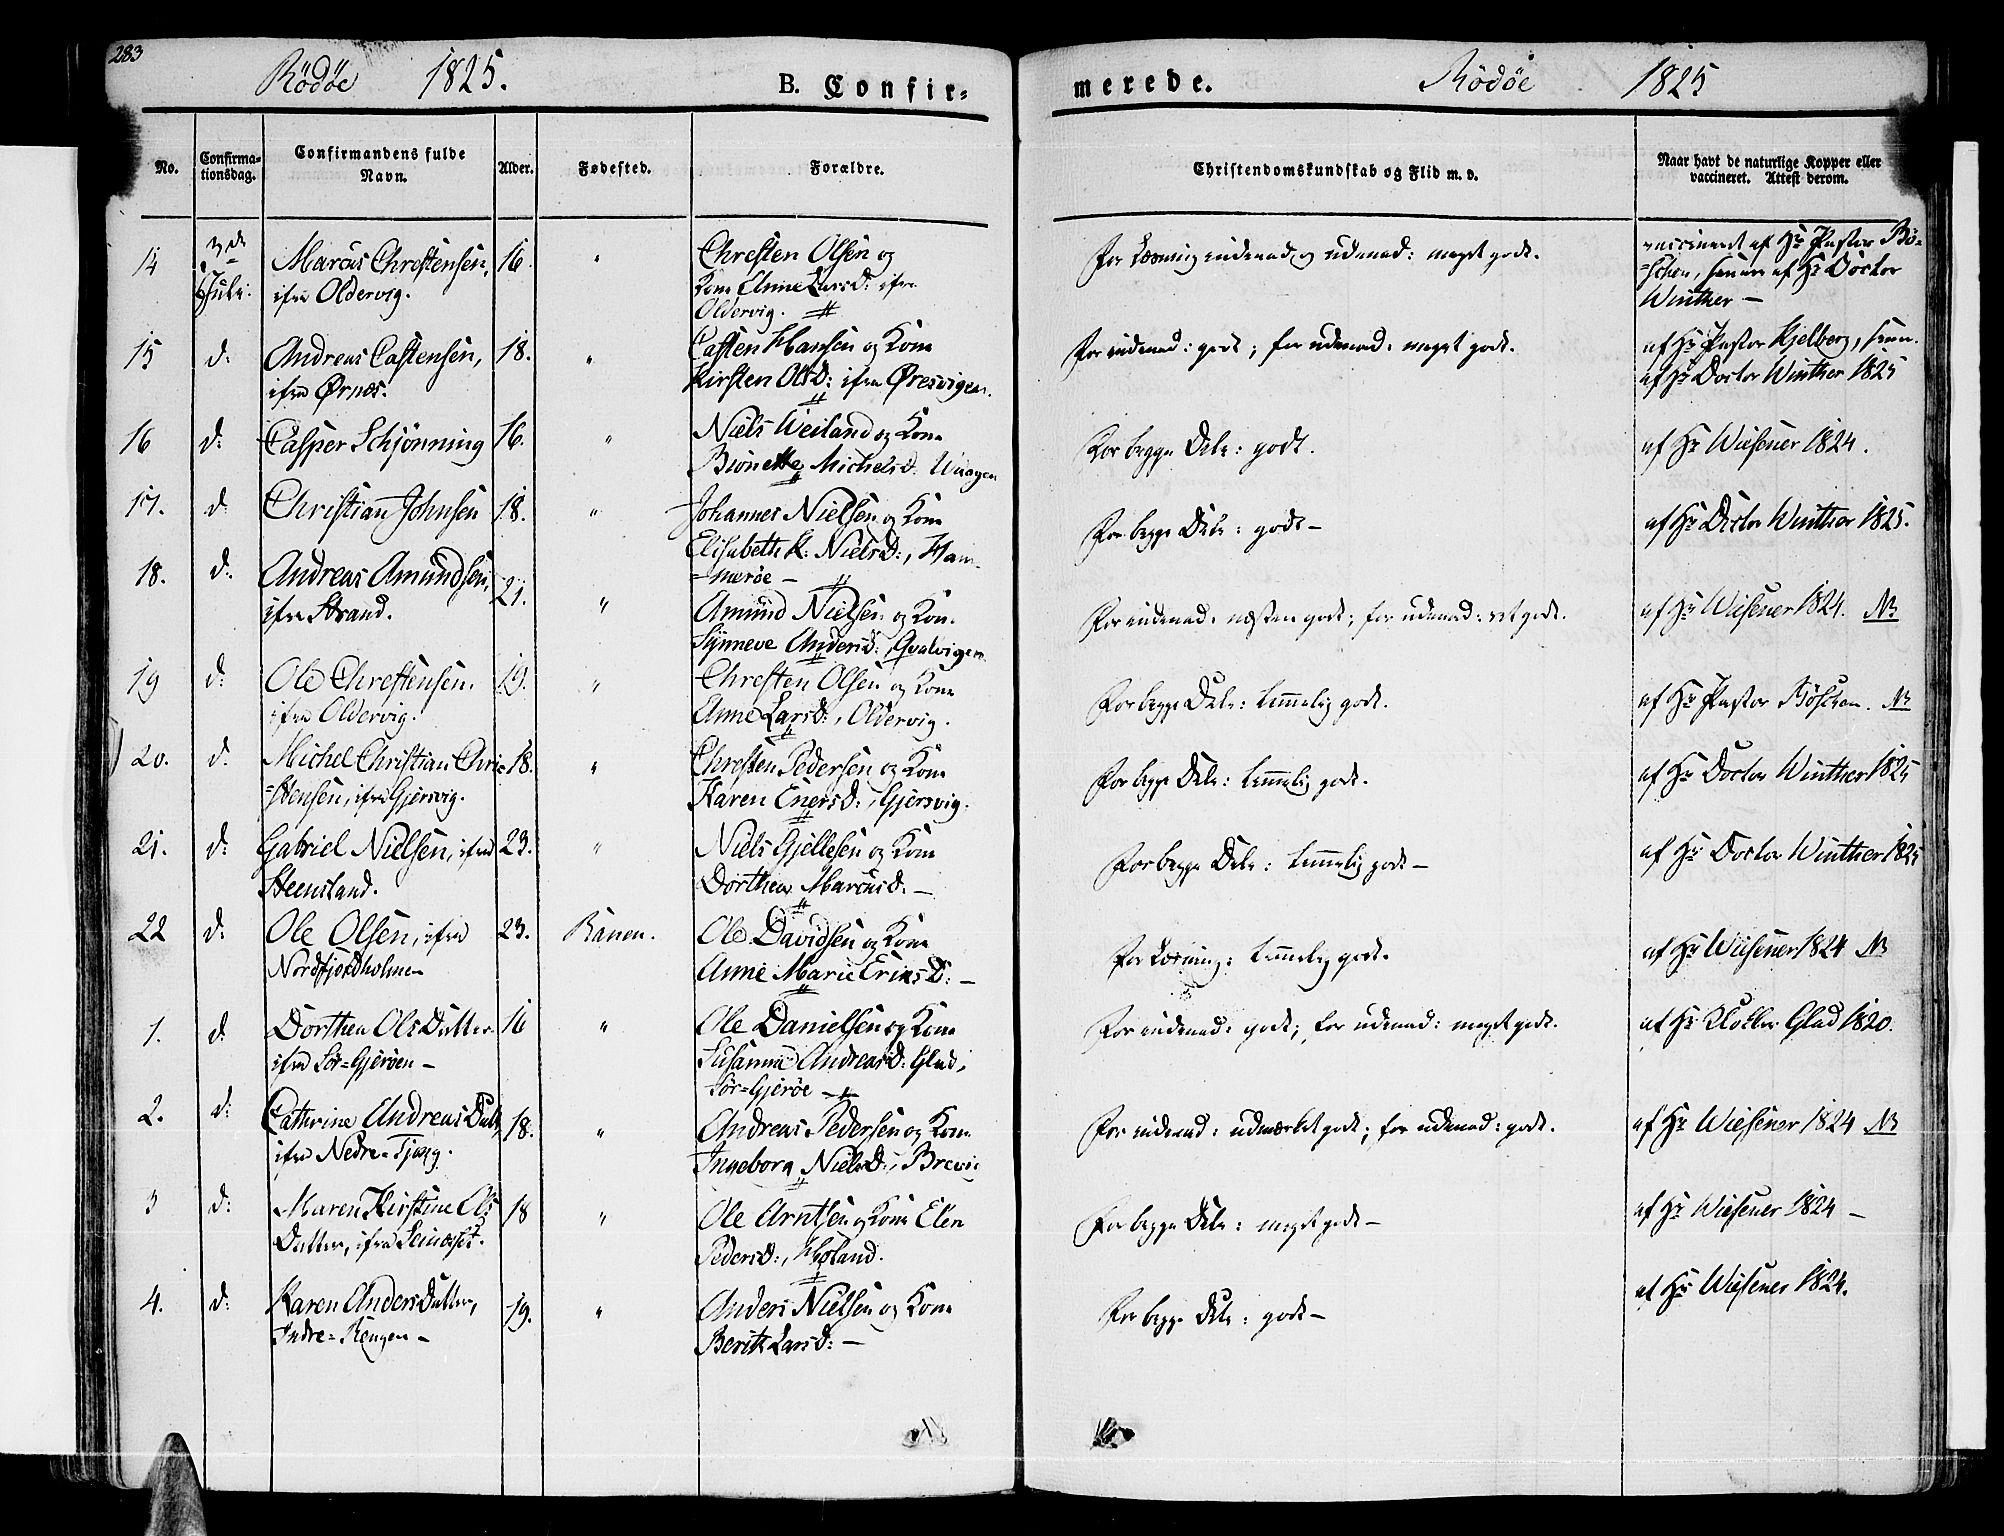 283
Rödöe 1825.
B. Confir-
merede.
Rödöe 1825
No.
Confirma-
tionsdag.
Confirmandens fulde
Navn.
Alder.
Fødested.
Forældre.
Christendomskundskab og Flid m. v.
Naar havt de naturlige Kopper eller
vaccineret. Attest derom.
14 3de Marcus Chrestensen, 16. " Chresten Olsen og For Læsning indenad og udenad: meget godt. vaccineret af Hr Pastor Bø-
Juli. ifra Oldervig. Kone Anne Larsd: ifra =schen, af Hr Doctor
Oldervig. Winther —
15 d: Andreas Castensen, 18. " Casten Hansen og Kone For indenad: godt; for udenad: meget godt. af Hr Pastor Kjelberg,
ifra Ørnæs. Kirsten Olsd: ifra Øresvigen. af Hr Doctor Winther 1825
16 d: Casper Schjønning 16. " Niels Weiland og Kone For begge Dele: godt. af Hr Wiesener 1824.
Michelsd. Waagen
17. d: Christian Johnsen 18. " Johannes Nielsen og Kone For begge Dele: godt — af Hr Doctor Winther 1825.
Elisabeth K: Nielsd:, Ham-
=merøe —
18. d: Andreas Amundsen, 21. " Amund Nielsen og Kone For indenad: næsten godt; for udenad: ret godt. af Hr Wiesener 1824. NB
ifra Strand. Synneve Andersd: Qvalvigen.
19 d: Ole Chrestensen. 19. " Chresten Olsen og Kone For begge Dele: temmelig godt. af Hr Pastor Bøschen. NB
ifra Oldervig. Anne Larsd:, Oldervig.
20. d: Michel Christian Chri= 18. " Chresten Pedersen og Kone For begge Dele: temmelig godt. af Hr Doctor Winther 1825
=stensen, ifra Gjersvig. Karen Enersd:, Gjersvig.
21. d: Gabriel Nielsen, ifra 23. " Niels Gjellesen og Kone For begge Dele: temmelig godt — af Hr Doctor Winther 1825
Steensland. Dorthea Marcusd: —
22 d: Ole Olsen, ifra 23. Ranen. Ole Davidsen og Kone For Læsning: temmelig godt. af Hr Wiesener 1824 NB
Nordfjordholmen Anne Marie Eriksd: —
1. d: Dorthea Olsdatter 16 " Ole Danielsen og Kone For indenad: godt; for udenad: meget godt. af Hr Glad 1820.
ifra Sør=Gjerøen — Susanna Andreasd: Glad,
Sør=Gjerøe —
2. d: Cathrine Andreasdatt, 18. " Andreas Pedersen og Kone For indenad: udmærket godt; for udenad: godt. af Hr Wiesener 1824 NB
ifra Nedre=Tjong. Ingeborg Nielsd:, Brevig
3 d: Maren Kirstine Ols 18 " Ole Arntsen og Kone Elen For begge Dele: meget godt — af Hr Wiesener 1824 —
Datter, ifra Pedersd:, Hyland.
4. d: Karen Andersdatter, 19. " Anders Nielsen og Kone For begge Dele: godt — af Hr Wiesener 1824.
Indre=Rengen — Berith Larsd: —